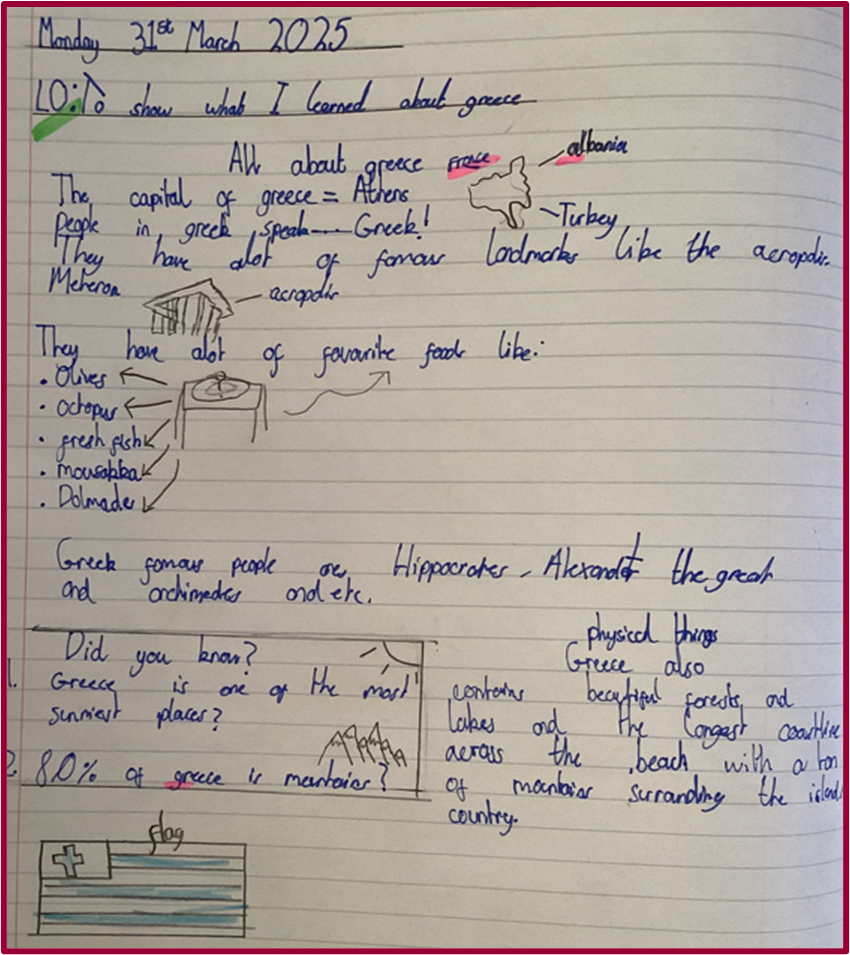 Monday 31st March 2025
LO: To show what I learned about greece
All about greece
France
albania
The capital of greece = Athens
People in greek speak Greek!
Turkey
They have alot of famous landmarks like the acropolis.
acropolis
They have alot of favourite foods like:
• Olives
• octopus
• fresh fish
• mousakka
• Dolmades
Greek famous people are, Hippocrates, Alexander the great
and archimedes and etc.
Did you know?
1. Greece is one of the most
sunniest places?
2. 80% of greece is mountains?
physical things
Greece also
contains beautiful forests, and
lakes and the longest coastline
across the beach with a ton
of mountains surranding the island
country.
flag